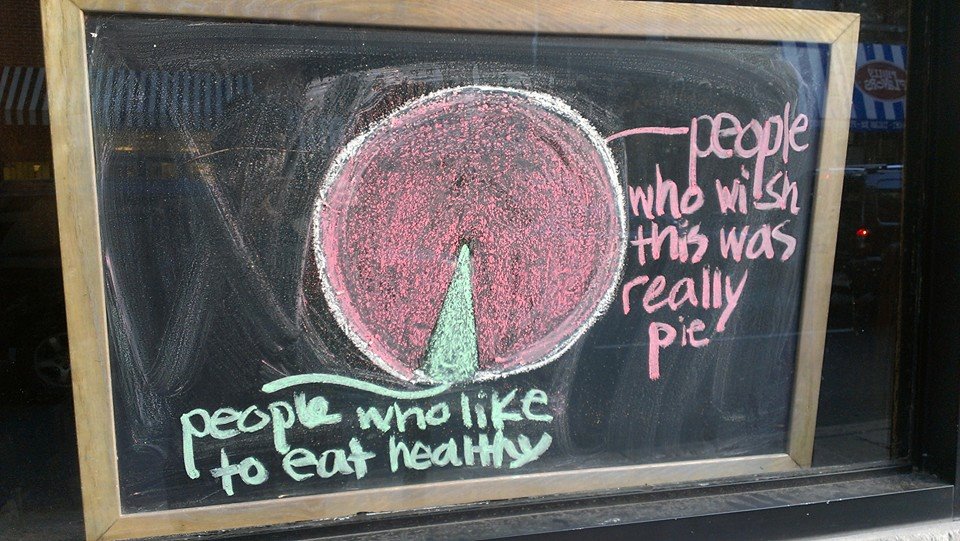 people
who wish
this was
really
pie
people who like
to eat healthy